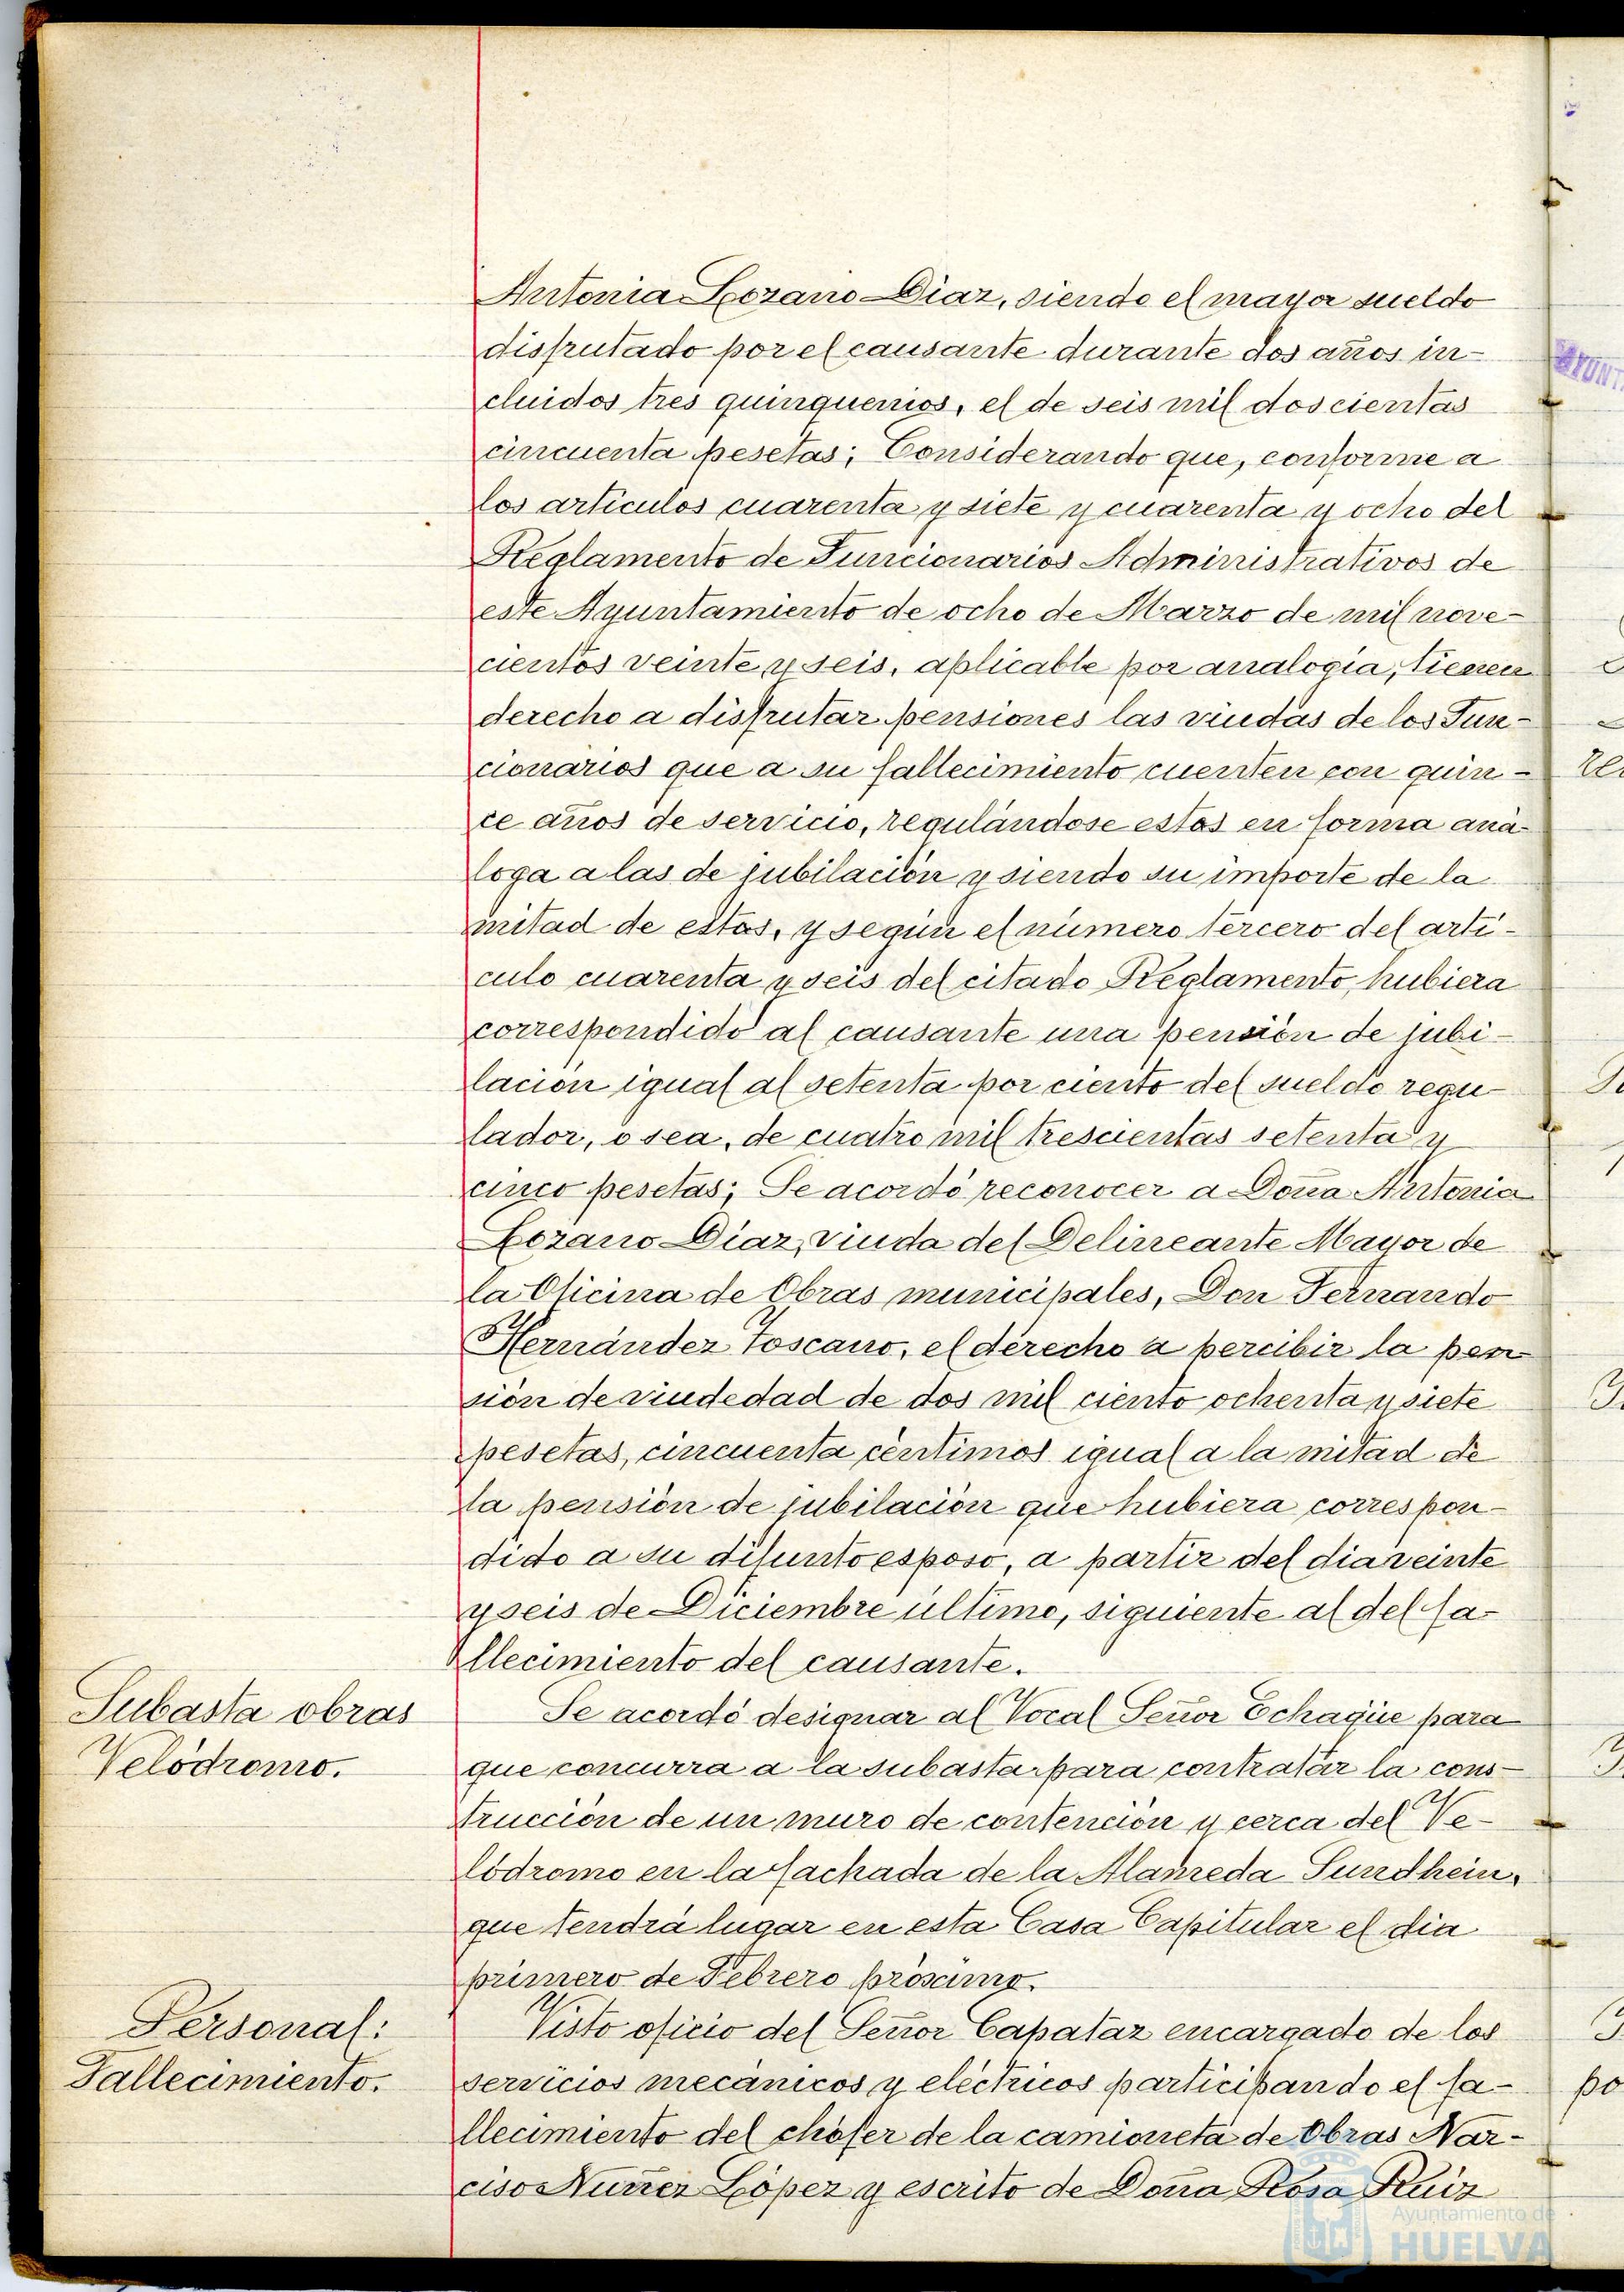 Antonia Lozano Diaz, siendo el mayor sueldo
disfrutado por el causante durante dos años in-
cluidos tres quinquenios, el de seis mil doscientas
cincuenta pesetas; Considerando que, conforme a
los articulos cuarenta y siete y cuarenta y ocho del
Reglamento de Funcionarios Administrativos de
este Ayuntamiento de ocho de Marzo de mil nove-
cientos veinte y seis, aplicable por analogía, tienen
derecho a disfrutar pensiones las viudas de los Fun-
cionarios que a su fallecimiento cuenten con quin-
ce años de servicio, regulándose estas en forma aná-
loga a las de jubilación y siendo su importe de la
mitad de estas, y según el número tercero del artí-
culo cuarenta y seis del citado Reglamento, hubiera
correspondido al causante una pensión de jubi-
lación igual al setenta por ciento del sueldo regu-
lador, o sea, de cuatro mil trescientas setenta y
cinco pesetas; Se acordó reconocer a Doña Antonia
Lozano Díaz, viuda del Delineante Mayor de
la Oficina de Obras municipales, Don Fernando
Hernández Toscano, el derecho a percibir la pen-
sión de viudedad de dos mil ciento ochenta y siete
pesetas, cincuenta céntimos igual a la mitad de
la pensión de jubilación que hubiera correspon-
dido a su difunto esposo, a partir del dia veinte
y seis de Diciembre último, siguiente al del fa-
llecimiento del causante.
Subasta obras
Velódromo.
Se acordó designar al Vocal Señor Echagüe para
que concurra a la subasta para contratar la cons-
trucción de un muro de contención y cerca del Ve-
lódromo en la fachada de la Alameda Sundhein,
que tendrá lugar en esta Casa Capitular el dia
primero de Febrero próximo.
Personal:
Fallecimiento.
Visto oficio del Señor Capataz encargado de los
servicios mecánicos y eléctricos participando el fa-
llecimiento del chófer de la camioneta de Obras Nar-
ciso Nuñez López y escrito de Doña Rosa Ruiz
Ayuntamiento de
HUELVA